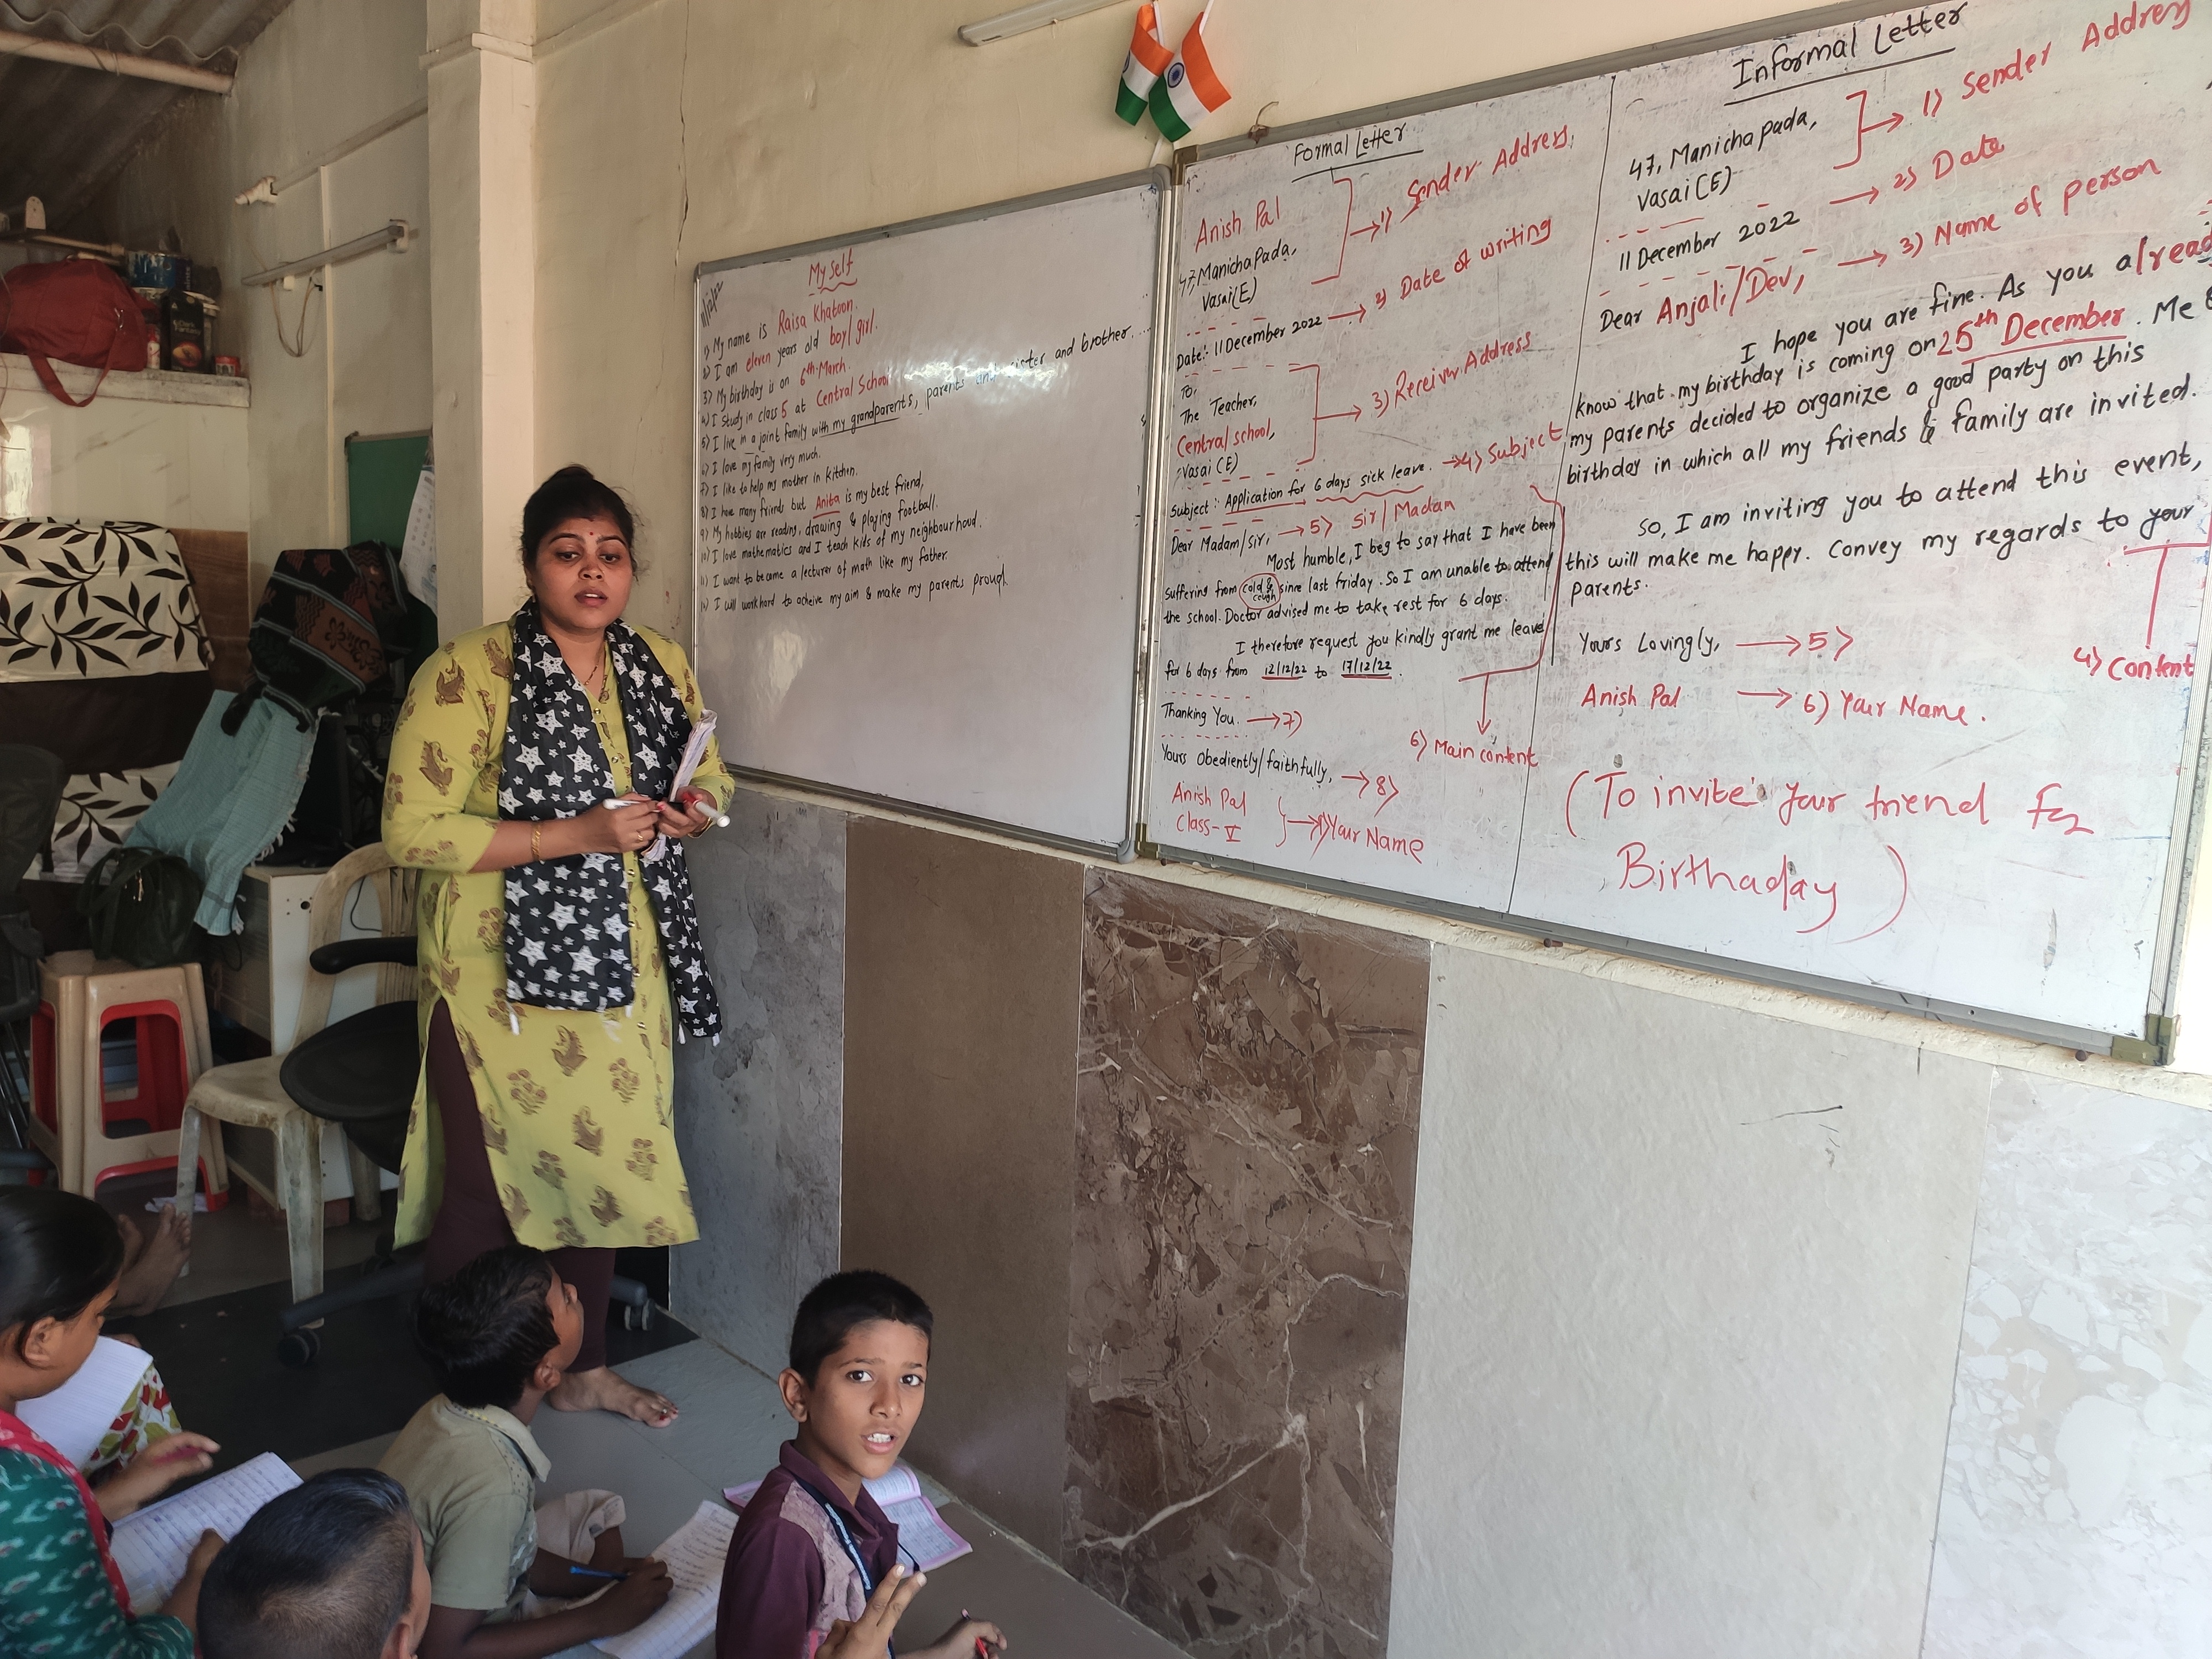 My self
11/12/22
1) My name is Raisa Khatoon.
2) I am eleven years old boy/girl.
3) My birthday is on 6th March.
4) I study in class 5 at Central School
5) I live in a joint family with my grandparents, parents and sister and brother....
6) I love my family very much.
7) I like to help my mother in kitchen.
8) I have many friends but Anita is my best friend,
9) My hobbies are reading, drawing & playing football.
10) I love mathematics and I teach kids of my neighbourhood.
11) I want to became a lecturer of math like my father.
12) I will workhard to acheive my aim & make my parents proud.
Formal Letter
Anish Pal
47, Manichapada,
Vasai(E)
→ 1) Sender Address
Date:- 11 December 2022 → 2) Date of writing
To,
The Teacher,
Central school,
Vasai (E)
→ 3) Receiver Address
Subject: Application for 6 days sick leave. → 4) Subject
Dear Madam/Sir, → 5) Sir/Madam
Most humble, I beg to say that I have been
suffering from cold & cough since last friday. So I am unable to attend
the school. Doctor advised me to take rest for 6 days.
I therefore request you kindly grant me leave
for 6 days from 12/12/22 to 17/12/22.
6) Main content
Thanking You. → 7)
Yours Obediently/faithfully, → 8)
Anish Pal
Class-V
→ 9) Your Name
Informal Letter
47, Manichapada,
Vasai (E)
→ 1) Sender Address
11 December 2022 → 2) Date
Dear Anjali/Dev, → 3) Name of person
I hope you are fine. As you
know that my birthday is coming on 25th December. Me &
my parents decided to organize a good party on this
birthday in which all my friends & family are invited.
So, I am inviting you to attend this event,
this will make me happy. Convey my regards to your
parents.
4) Content
Yours Lovingly, → 5)
Anish Pal → 6) Your Name.
(To invite your friend for
Birthaday)